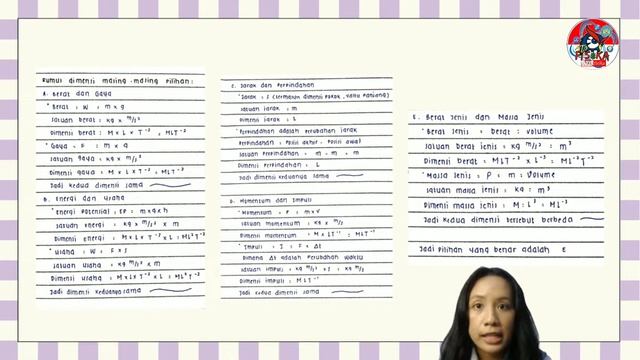 FISIKA
Rumus dimensi masing-masing pilihan:
A. Berat dan Gaya
* Berat : W : m × g
Satuan berat : kg × m/s²
Dimensi berat : M × L × T⁻² : MLT⁻²
* Gaya : F : m × a
Satuan gaya : kg × m/s²
Dimensi gaya : M × L × T⁻² : MLT⁻²
Jadi kedua dimensi sama
B. Energi dan Usaha
* Energi Potensial : EP : m×g×h
Satuan energi : kg × m/s² × m
Dimensi energi : M×L×T⁻²×L : ML²T⁻²
* Usaha : W : F × s
Satuan usaha : kg × m/s² × m
Dimensi usaha : M×L×T⁻²×L : ML²T⁻²
Jadi dimensi keduanya sama
C. Jarak dan Perpindahan
* Jarak : s (termasuk dimensi pokok, yaitu panjang)
Satuan jarak : m
Dimensi jarak : L
* Perpindahan adalah perubahan jarak
Perpindahan : Posisi akhir - Posisi awal
Satuan Perpindahan : m - m : m
Dimensi Perpindahan : L
Jadi dimensi keduanya sama
D. Momentum dan Impuls
* Momentum : P : m×v
Satuan momentum : kg × m/s
Dimensi momentum : M×LT⁻¹ : MLT⁻¹
* Impuls : I : F × Δt
Dimana Δt adalah Perubahan waktu
Satuan impuls : kg × m/s² × s : kg m/s
Dimensi impuls : MLT⁻¹
Jadi kedua dimensi sama
E. Berat Jenis dan Massa Jenis
* Berat Jenis : berat : volume
Satuan berat jenis : kg m/s² : m³
Dimensi berat : MLT⁻² × L⁻³ : ML⁻²T⁻²
* Massa Jenis : ρ : m : Volume
Satuan massa jenis : kg : m³
Dimensi massa jenis : M : L³ : ML⁻³
Jadi kedua dimensi tersebut berbeda
Jadi Pilihan yang benar adalah E